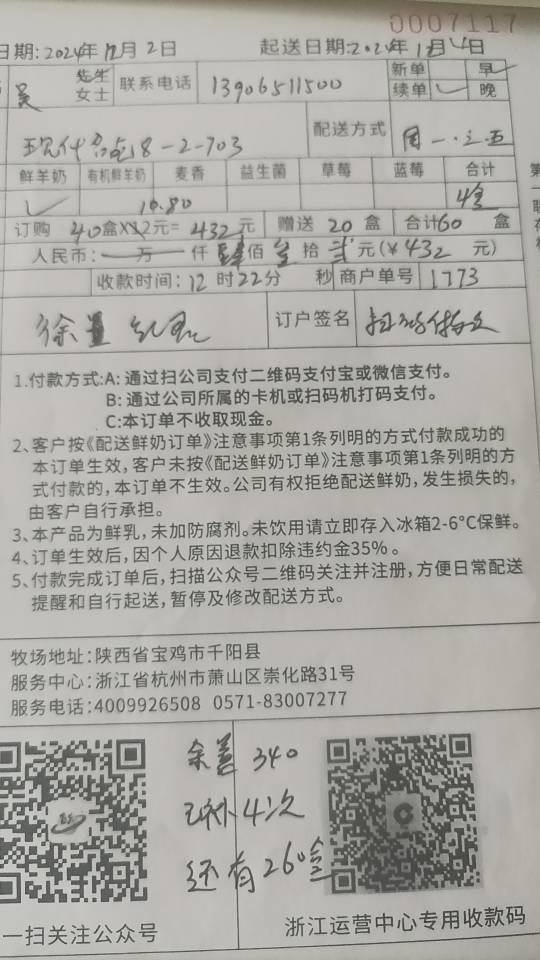 0007117
日期:2024年12月2日 起送日期:2024年12月4日
吴 先生 女士 联系电话 13906511500 新单 早
续单 晚
8-2-703 配送方式 周一.三.五
鲜羊奶 有机鲜羊奶 麦香 益生菌 草莓 蓝莓 合计
10.80
订购 40盒X12元= 432元 赠送 20 盒 合计60 盒
人民币: 万 仟 肆佰 叁 拾 贰 元(￥432 元)
收款时间: 12 时22分 秒 商户单号 1773
徐 订户签名
1.付款方式:A: 通过扫公司支付二维码支付宝或微信支付。
B: 通过公司所属的卡机或扫码机打码支付。
C:本订单不收取现金。
2、客户按《配送鲜奶订单》注意事项第1条列明的方式付款成功的
本订单生效,客户未按《配送鲜奶订单》注意事项第1条列明的方
式付款的,本订单不生效。公司有权拒绝配送鲜奶,发生损失的,
由客户自行承担。
3、本产品为鲜乳,未加防腐剂。未饮用请立即存入冰箱2-6°C保鲜。
4、订单生效后,因个人原因退款扣除违约金35%。
5、付款完成订单后,扫描公众号二维码关注并注册,方便日常配送
提醒和自行起送,暂停及修改配送方式。
牧场地址:陕西省宝鸡市千阳县
服务中心:浙江省杭州市萧山区崇化路31号
服务电话:4009926508 0571-83007277
340
4次
还有260盒
一扫关注公众号 浙江运营中心专用收款码